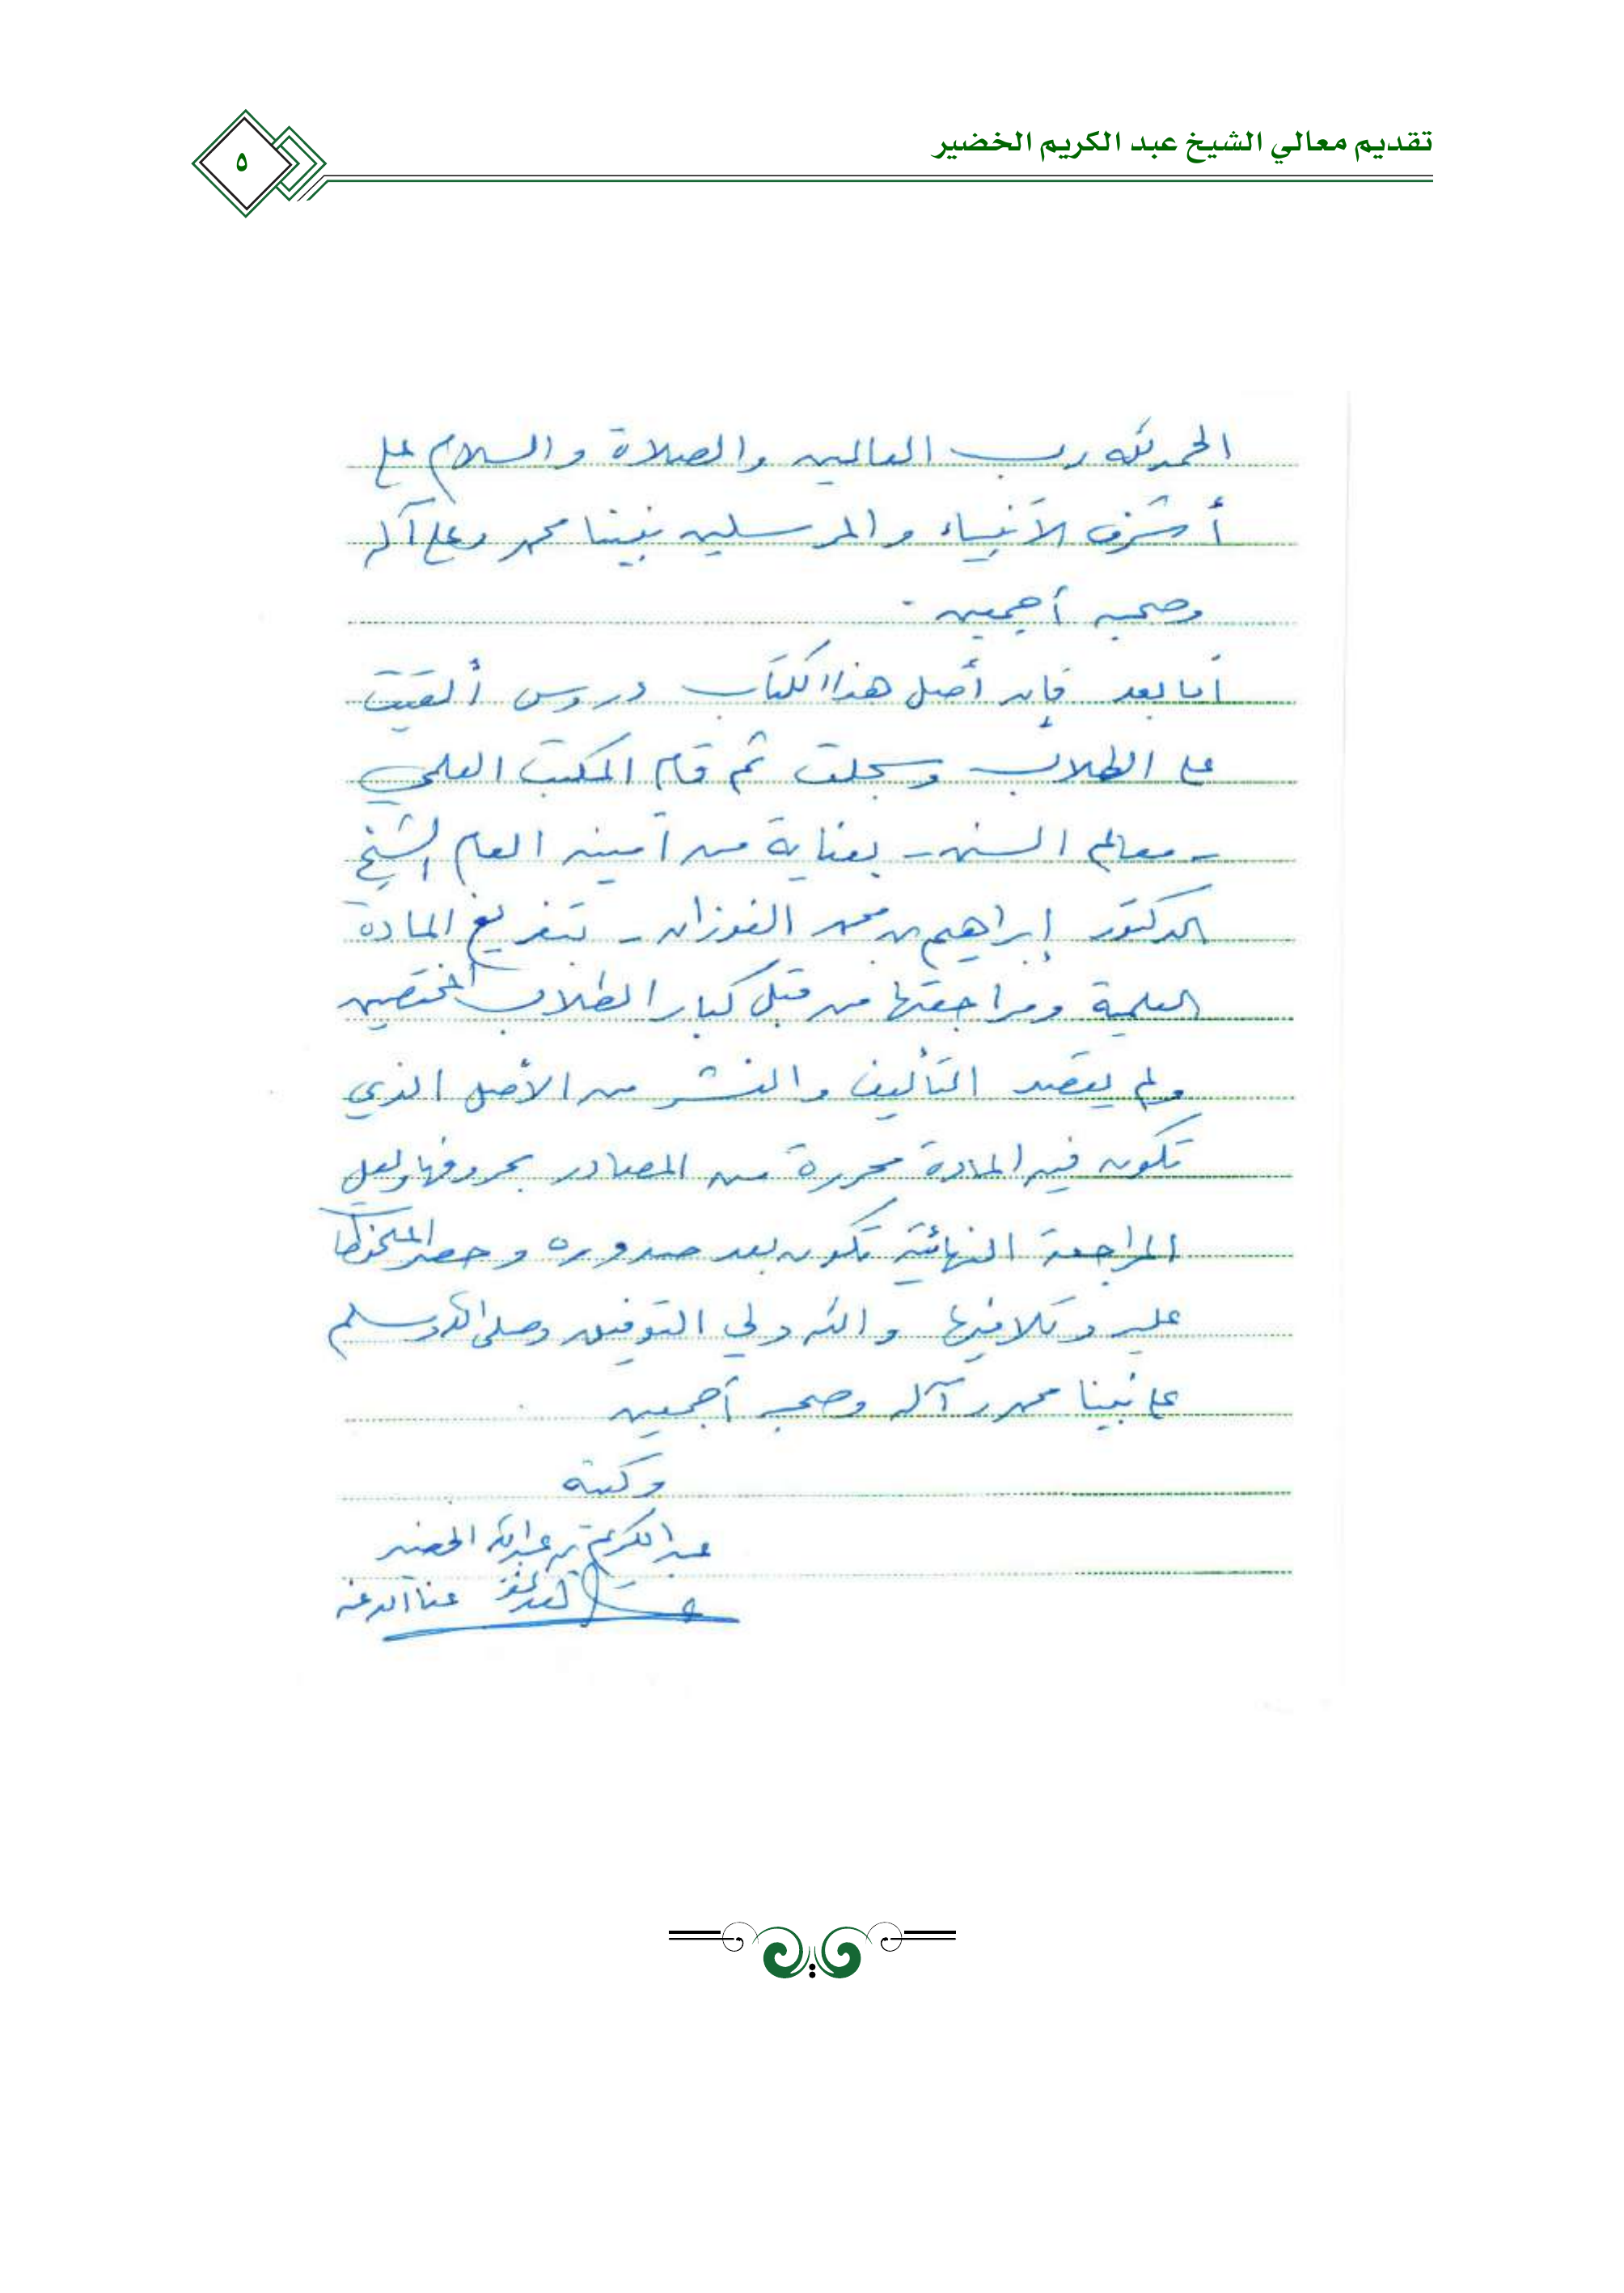 تقديم معالي الشيخ عبد الكريم الخضير
٥
الحمد لله رب العالمين والصلاة والسلام على
أشرف الأنبياء والمرسلين نبينا محمد وعلى آله
وصحبه أجمعين.
أما بعد فإن أصل هذا الكتاب دروس ألقيت
على الطلاب وسجلت ثم قام المكتب العلمي
- معالم السنن - بعناية من أمينه العام الشيخ
الدكتور إبراهيم بن محمد الفوزان - بتفريغ المادة
العلمية ومراجعتها من قبل كبار الطلاب المختصين
ولم يقصد التأليف والنشر من الأصل الذي
تكون فيه المادة محررة من المصادر بحروفها ولعل
المراجعة النهائية تكون بعد صدوره وحصر الملحوظات
عليه وتلافيها والله ولي التوفيق وصلى الله وسلم
على نبينا محمد وآله وصحبه أجمعين
وكتبه
عبد الكريم بن عبد الله الخضير
عفا الله عنه